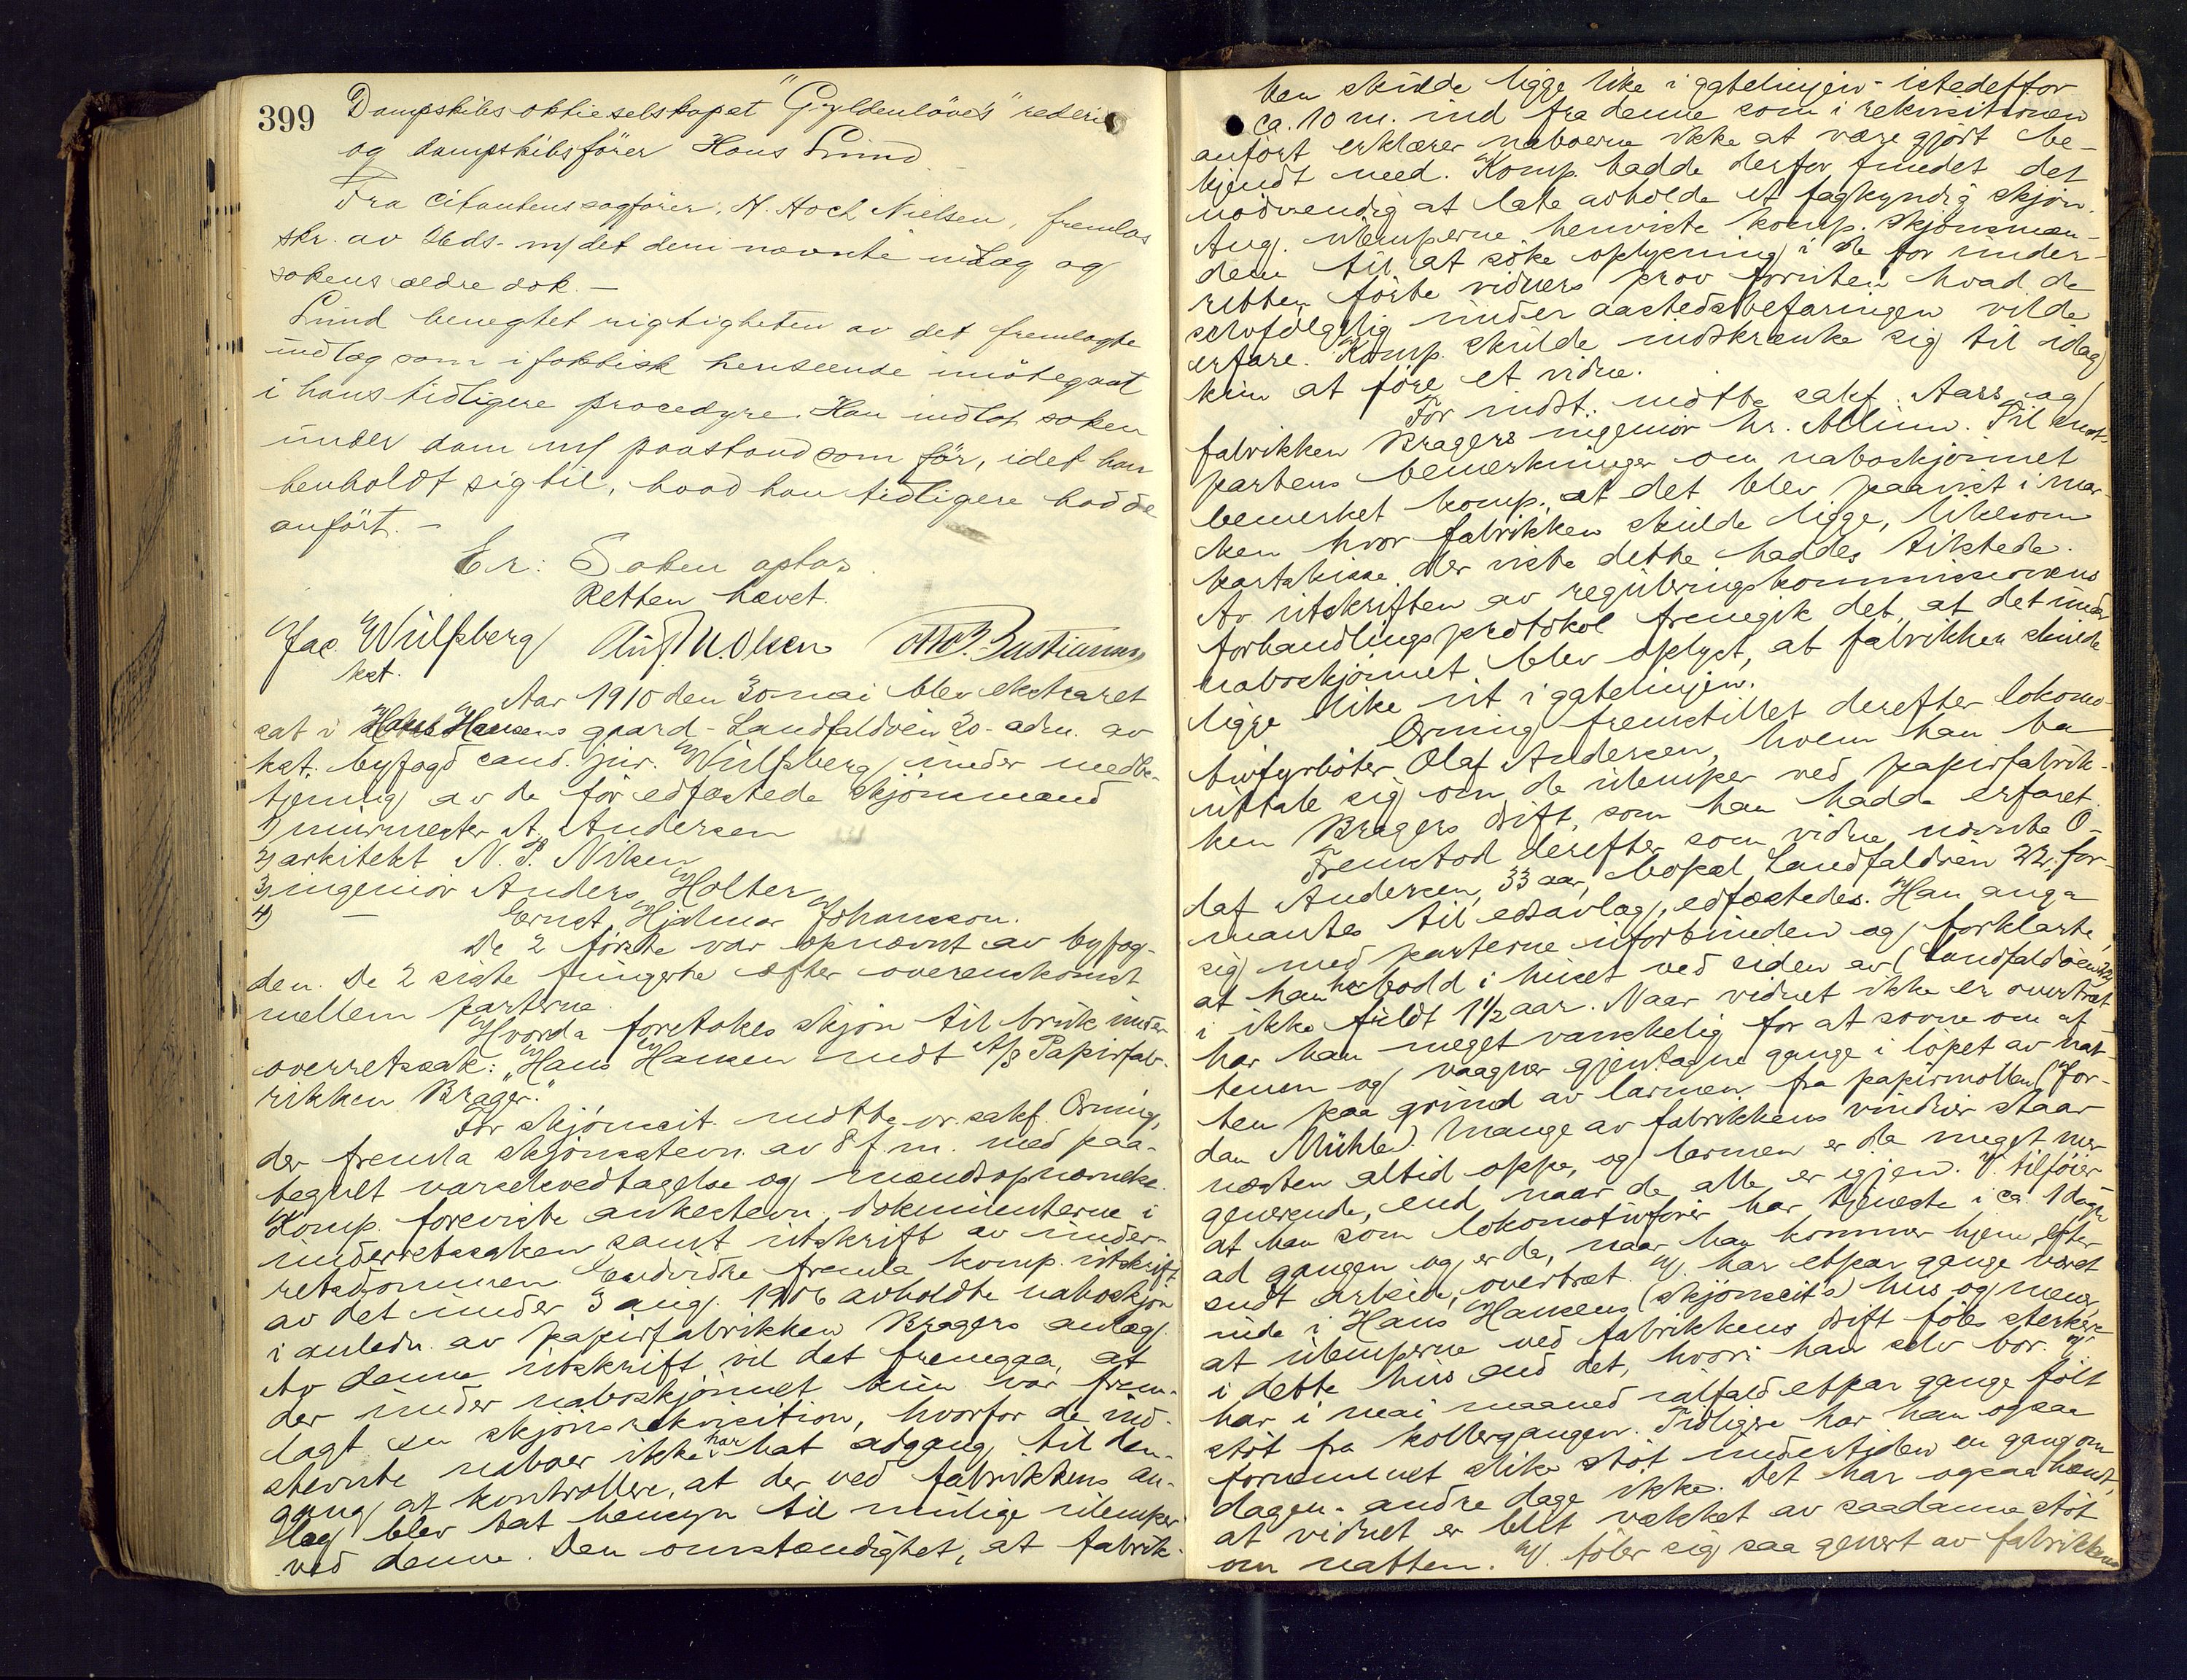 399
Dampskibsaktieselskapet "Gyldenløve's" rederi
og dampskibsfører Hans Lund
Fra citantens sagfører, N. Hoch Nielsen, fremlas
skr. av 26ds. m/ det deri nævnte indlæg og
sakens ældre dok. –
Lund benegtet rigtigheten av det fremlagte
indlæg som i faktisk henseende imøtegaat
i hans tidligere procedyre. Han indlot saken
under dom m/ paastand som før, idet han
henholdt sig til, hvad han tidligere hadde
anført. –
Er: Saken optas.
Retten hævet.
Jac. Wulfsberg Aug. M. Olsen
kst.
Aar 1910 den 30 mai blev ekstraret
sat i Hans Hansens gaard – Landfaldøien 20 – adm. av
kst. byfogd cand. jur. Wulfsberg under medbe-
tjening av de før edfæstede skjønsmænd
1) murmester A. Andersen
2) arkitekt N. P. Nilsen
3) ingeniør Anders Holter
4) — Ernst Hjalmar Johansson.
De 2 første var opnævnt av byfog-
den. De 2 siste fungerte efter overenskomst
mellem parterne.
Hvorda foretokes skjøn til bruk under
overretssak: "Hans Hansen mot A/S Papirfab-
rikken Brager."
For skjønscit. møtte or. sakf. Orning,
der fremla skjønsstevn. av 8 f. m. med paa-
tegnet varselsvedtagelse og mandsopnævnelse.
Komp. foreviste ankestevn. dokumenterne i
underretssaken samt utskrift av under-
retsdommen. Endvidre fremla komp. utskrift
av det under 3 aug. 1906 avholdte naboskjøn
i anledn. av papirfabrikken Bragers anlæg.
Av denne utskrift vil det fremgaa, at
der under naboskjønnet kun var frem-
lagt en skjønsrekvisition, hvorfor de ind-
stevnte naboer ikke har hat adgang til den-
gang at kontrollere, at der ved fabrikkens an-
læg blev tat hensyn til mulige ulemper
ved denne. Den omstændighet, at fabrik-
ken skulde ligge like i gatelinjen – istedetfor
ca. 10 m. ind fra denne som i rekvisitionen
anført erklærer naboerne ikke at være gjort be-
kjendt med. Komp. hadde derfor fundet det
nødvendig at late avholde et fagkyndig skjøn.
Ang. ulemperne henviste komp. skjønsmæn-
dene til at søke oplysning i de for under-
retten førte vidners prov foruten hvad de
selvfølgelig under aastedsbefaringen vilde
erfare. Komp. skulde indskrænke sig til idag
kun at føre et vidne.
For indst. møtte sakf. Aars og
fabrikken Bragers ingeniør hr. Allum. Til mot-
partens bemerkninger om naboskjønnet
bemerket komp., at det blev paavist i mar-
ken hvor fabrikken skulde ligge, likesom
kartskisse, der viste dette haddes tilstede.
Av utskriften av reguleringskommissionens
forhandlingsprotokol fremgik det, at det under
naboskjønnet blev oplyst, at fabrikken skulde
ligge like ut i gatelinjen.
Orning fremstillet derefter lokomo-
tivfyrbøter Olaf Andersen, hvem han ba
uttale sig om de ulemper ved papirfabrik-
ken Bragers drift, som han hadde erfaret.
Fremstod derefter som vidne nævnte O-
laf Andersen, 33 aar, bopæl Landfaldøien 22, for-
mantes til edsavlæg, edfæstedes. Han anga
sig med parterne uforbunden og forklarte,
at han har bodd i huset ved siden av (Landfaldøien 22)
i ikke fuldt 1½ aar. Naar vidnet ikke er overtræt
har han meget vanskelig for at sovne om af-
tenen og vaagner gjentagne gange i løpet av nat-
ten paa grund av larmen fra papirmøllen (Jor-
dan Mühle). Mange av fabrikkens vinduer staar
næsten altid oppe, og larmen er da meget mer
generende, end naar de alle er igjen. V. tilføier
at han som lokomotivfører har tjeneste i ca. 1 døgn
ad gangen og er da, naar han kommer hjem efter
endt arbeide, overtræt. V. har etpar gange været
inde i Hans Hansens (skjønscit's) hus og mener
at ulemperne ved fabrikkens drift føles sterkere
i dette hus end det, hvori han selv bor. V.
har i mai maaned ialfald etpar gange følt
støt fra kollergangen. Tidligere har han ogsaa
fornummet slike støt undertiden en gang om
dagen – andre dage ikke. Det har ogsaa hændt,
at vidnet er blit vækket av saadanne støt
om natten. V. føler sig saa genert av fabrikkens